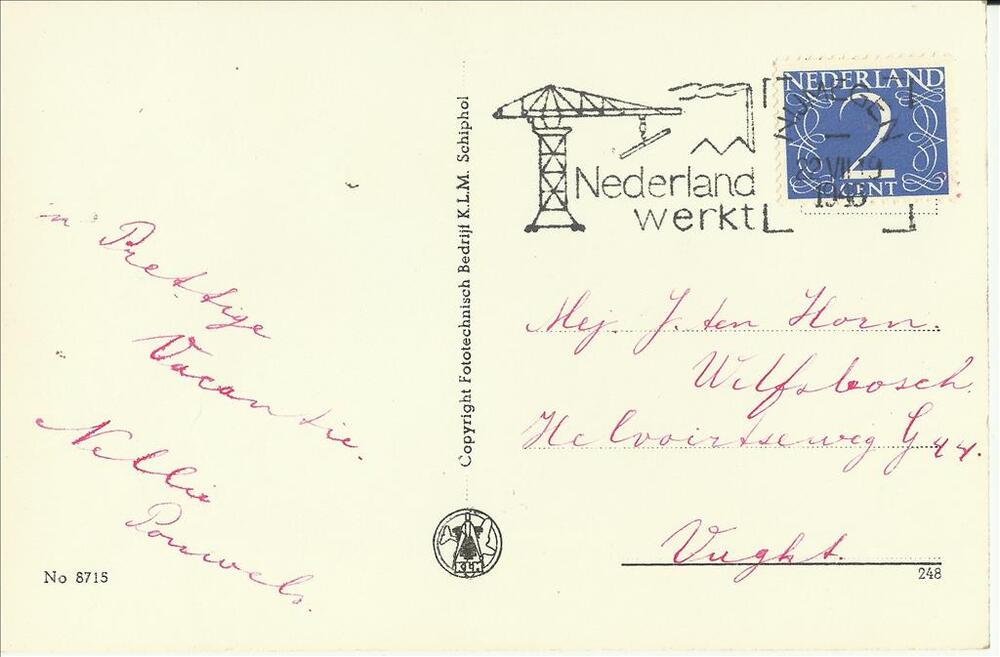 'n Prettige
Vacantie.
Nellie
Pouwels.
No 8715
Copyright Fototechnisch Bedrijf K.L.M. Schiphol
Nederland
werkt
NIJMEGEN
VII 19
NEDERLAND
2
CENT
Mej. J. ten Horn.
Wilfsbosch.
Helvoirtseweg G 44.
Vught.
248